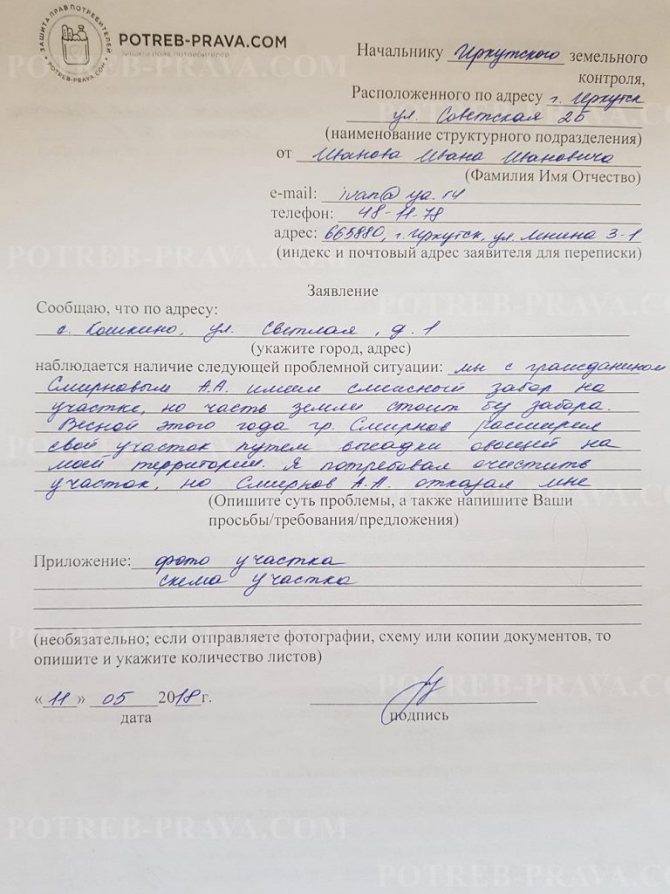 ЗАЩИТА ПРАВ ПОТРЕБИТЕЛЕЙ
POTREB-PRAVA.COM
POTREB-PRAVA.COM
Начальнику Иркутского земельного
контроля,
Расположенного по адресу г. Иркутск
ул. Советская 2б
(наименование структурного подразделения)
от Иванова Ивана Ивановича
(Фамилия Имя Отчество)
e-mail: ivan@ya.ru
телефон: 48-11-78
адрес: 665880, г. Иркутск, ул. Мнина 3-1
(индекс и почтовый адрес заявителя для переписки)
Заявление
Сообщаю, что по адресу:
с. Кошкино, ул. Светлая, д. 1
(укажите город, адрес)
наблюдается наличие следующей проблемной ситуации: мы с гражданином
Смирновым А.А. имеем смежный забор на
участке, но часть земли стоит без забора.
Весной этого года гр. Смирнов расширил
свой участок путем высадки овощей на
моей территории. Я потребовал очистить
участок, но Смирнов А.А. отказал мне
(Опишите суть проблемы, а также напишите Ваши
просьбы/требования/предложения)
Приложение: фото участка
схема участка
(необязательно; если отправляете фотографии, схему или копии документов, то
опишите и укажите количество листов)
«11» 05 2018г.
дата
подпись
POTREB-PRAVA.COM
POTREB-PRAVA.COM